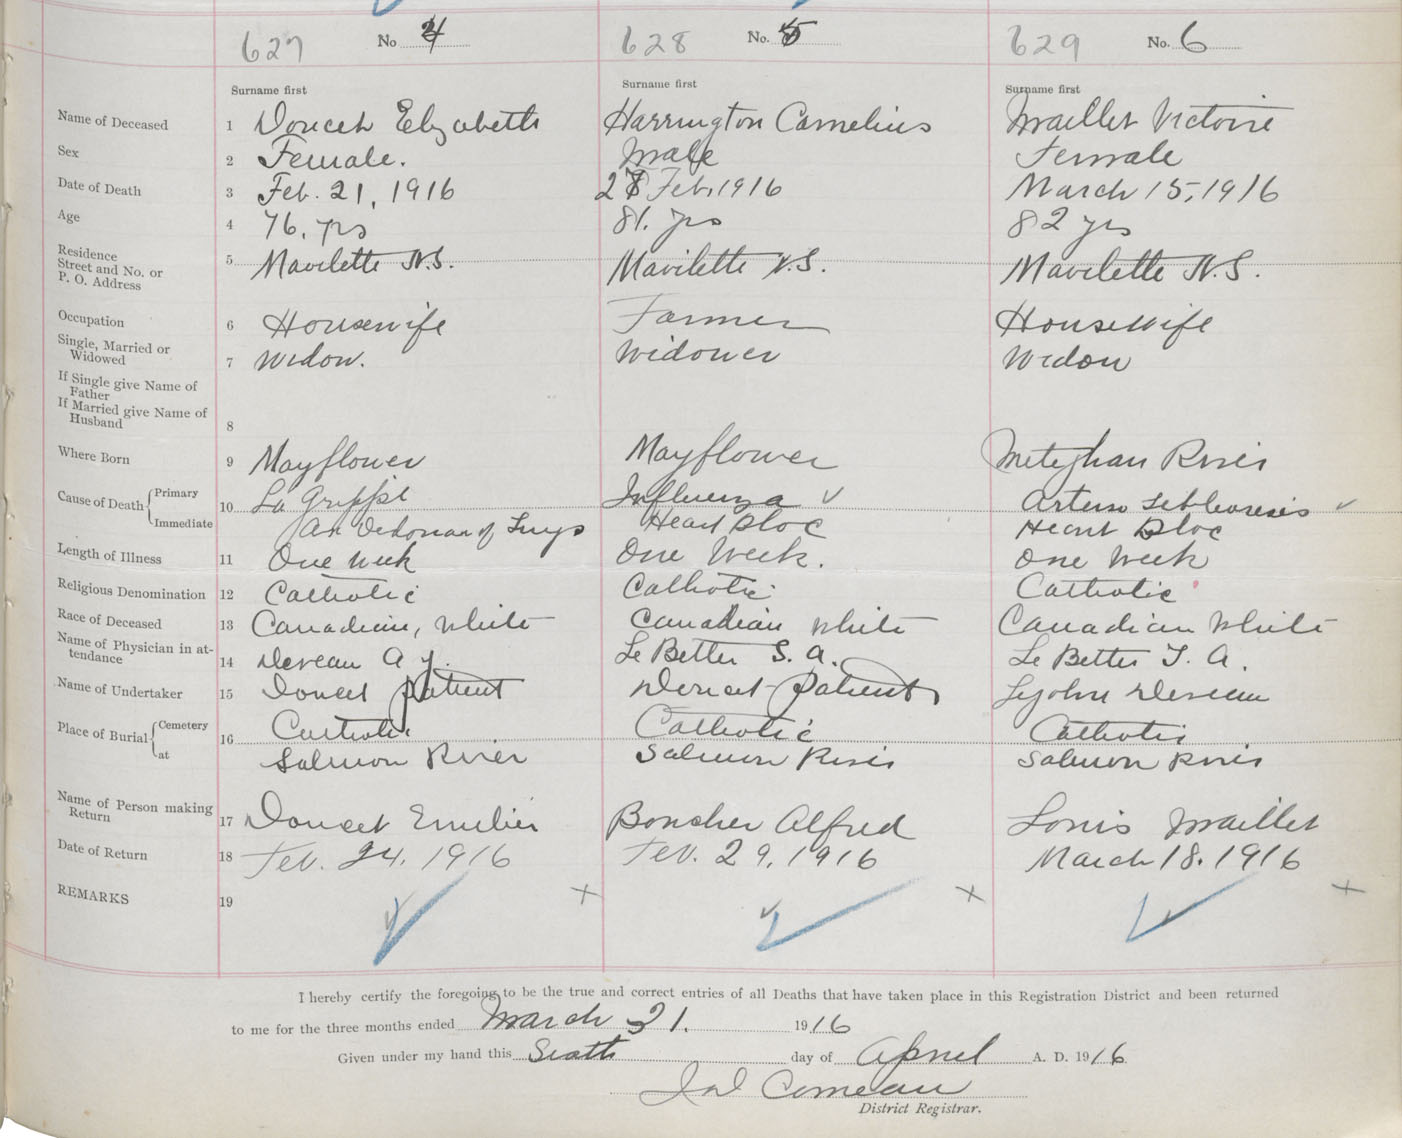 627 No 4 628 No. 5 629 No. 6
Surname first Surname first Surname first
Name of Deceased 1 Doucet Elizabeth Harrington Cornelius Maillet Victoire
Sex 2 Female. Male Female
Date of Death 3 Feb. 21, 1916 Feb, 1916 March 15, 1916
Age 4 76. yrs 81. yrs 82 yrs
Residence
Street and No. or
P. O. Address
5 Mavilette N.S. Mavilette N.S. Mavilette N.S.
Occupation 6 Housewife Farmer Housewife
Single, Married or
Widowed 7 Widow. Widower Widow
If Single give Name of
Father
If Married give Name of
Husband 8
Where Born 9 Mayflower Mayflower Meteghan River
Cause of Death { Primary 10 La Grippe Influenza ✓ ✓
Immediate of Lungs Heart Bloc Heart Bloc
Length of Illness 11 One week One Week. One Week
Religious Denomination 12 Catholic Catholic Catholic
Race of Deceased 13 Canadian, White Canadian White Canadian White
Name of Physician in at-
tendance 14 Deveau A J. Le Better S. A. Le Better S. A.
Name of Undertaker 15 Doucet patient Doucet patient John Deveau
Place of Burial { Cemetery 16 Catholic Catholic Catholic
at Salmon River Salmon River Salmon River
Name of Person making
Return 17 Doucet Emilie Boucher Alfred Louis Maillet
Date of Return 18 Feb. 24, 1916 Feb. 29, 1916 March 18. 1916
REMARKS 19
I hereby certify the foregoing to be the true and correct entries of all Deaths that have taken place in this Registration District and been returned
to me for the three months ended March 31. 1916
Given under my hand this Sixth day of April A. D. 1916
Comeau
District Registrar.